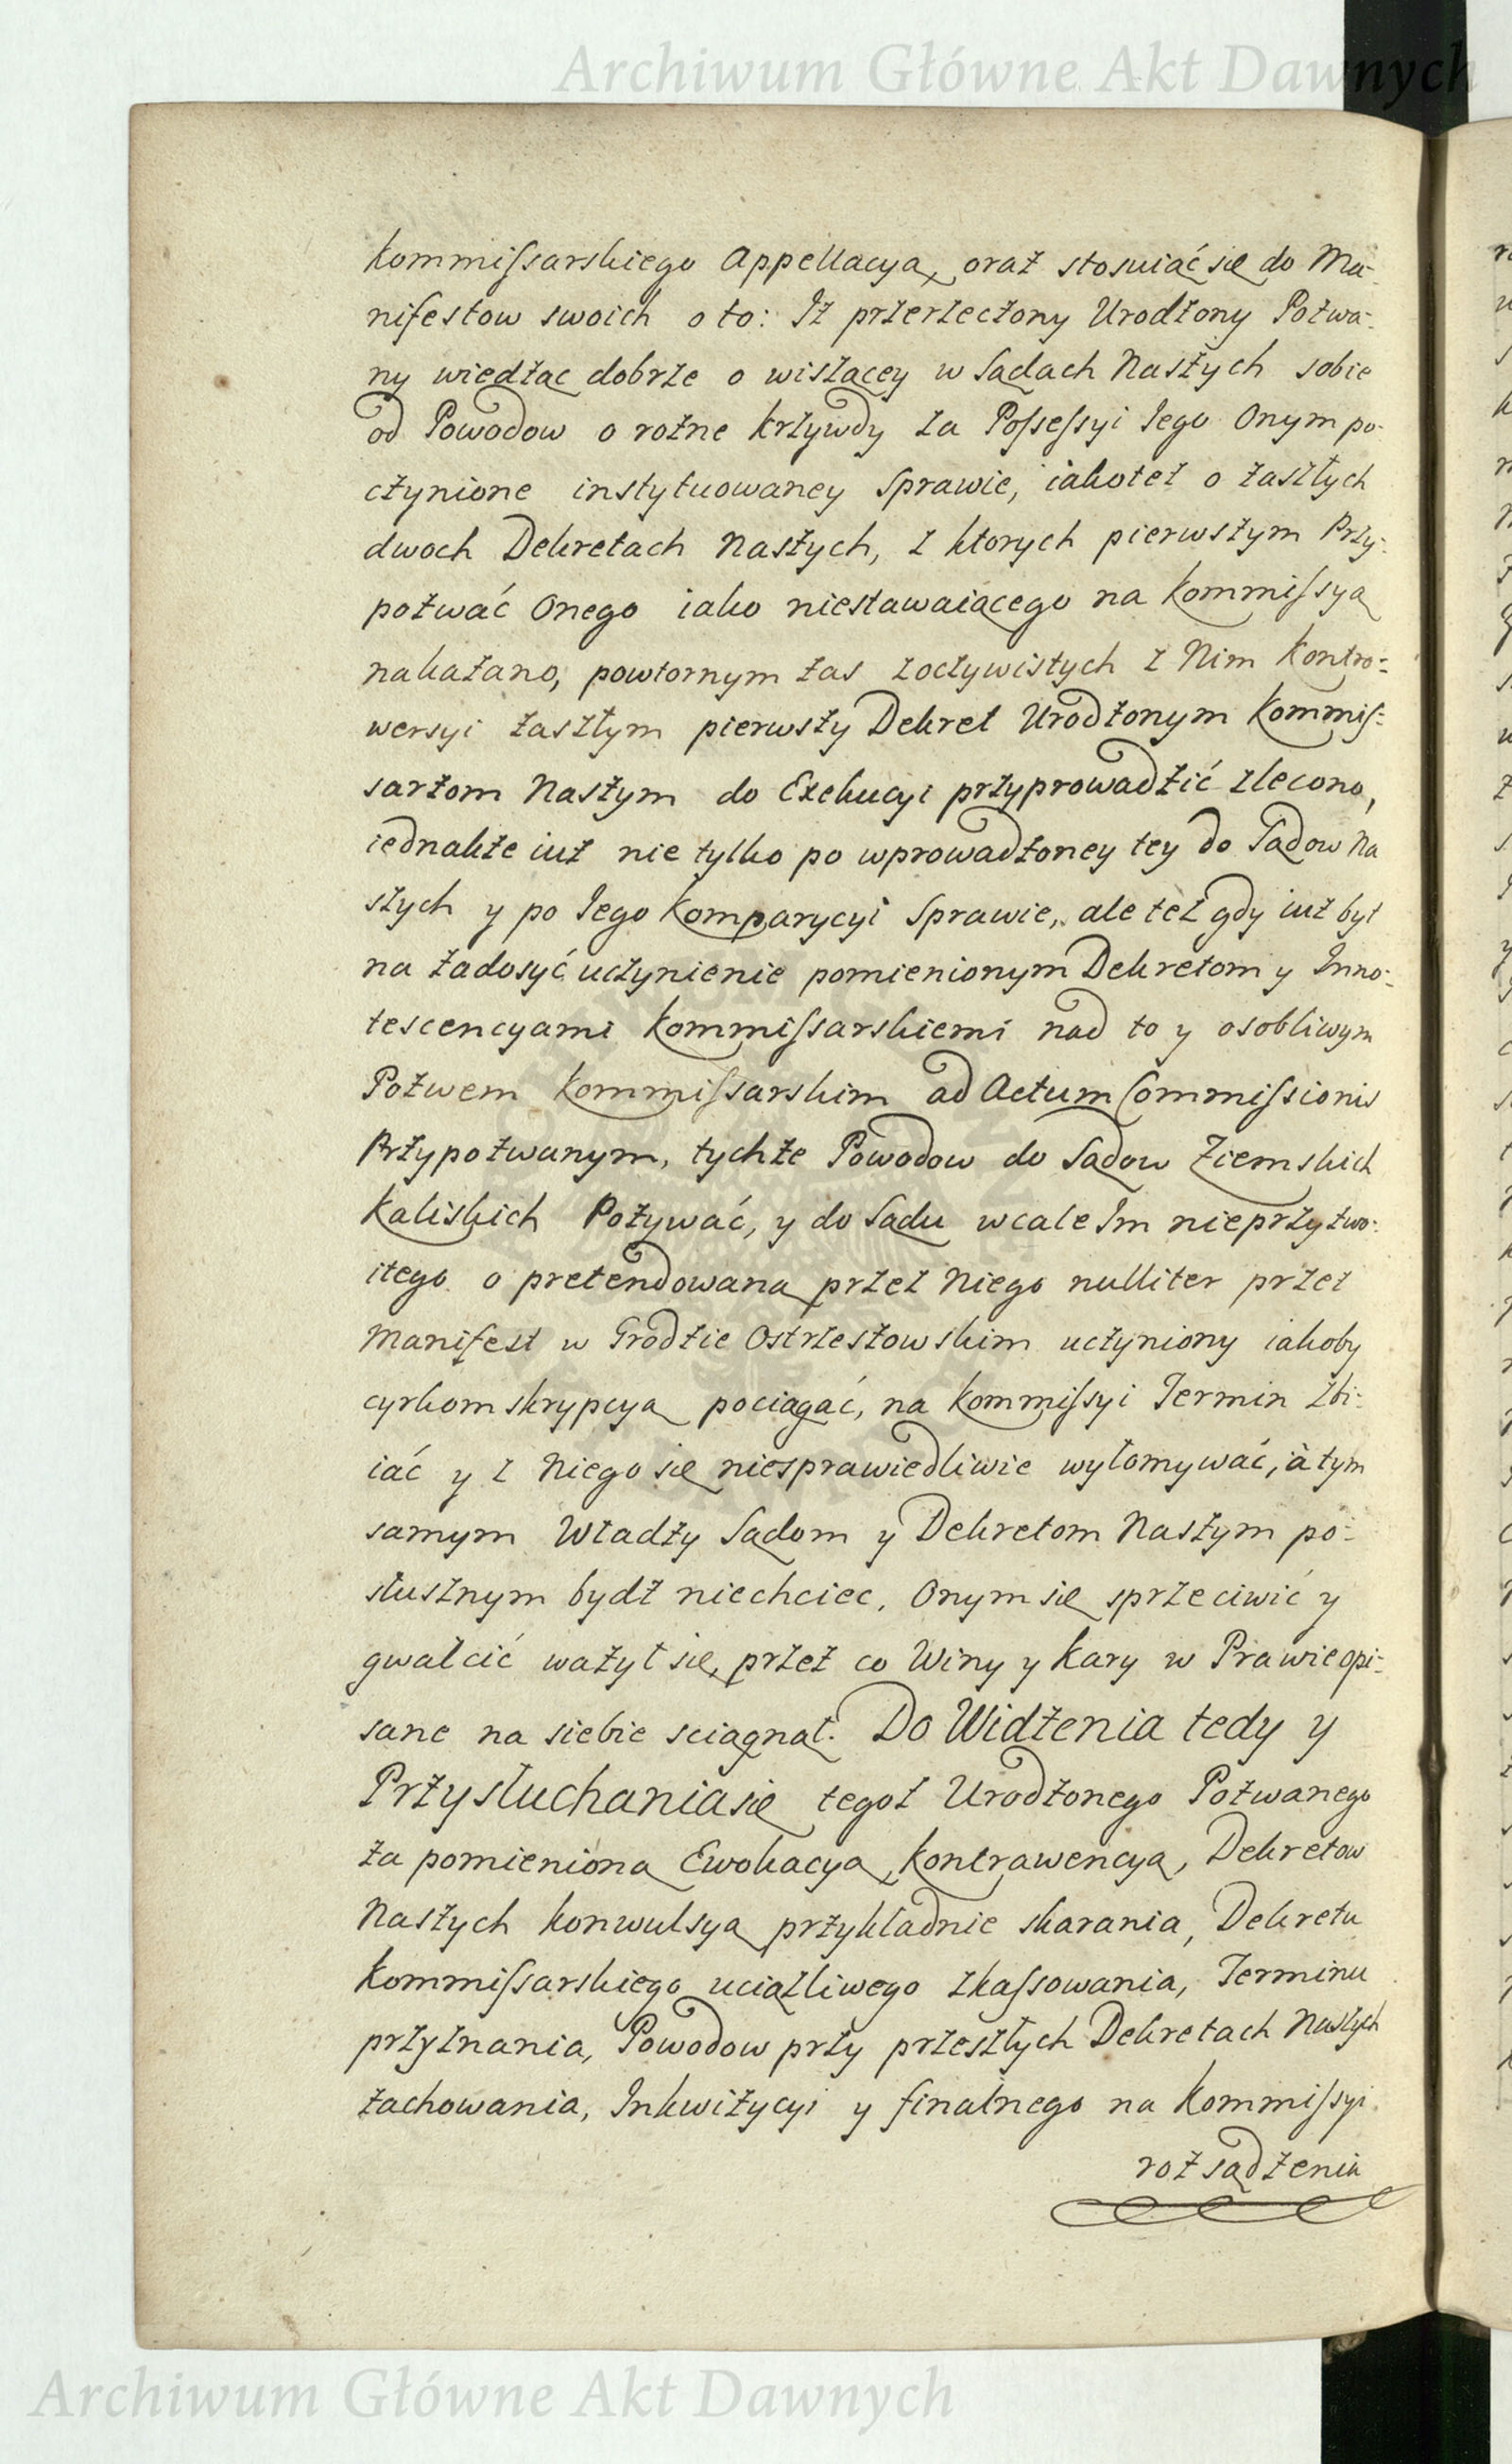 Archiwum Główne Akt Dawnych
Kommissarskiego Appellacyą, oraz stosuiąć się do Ma-
nifestow swoich o to: Iż przerzeczony Urodzony Pozwa-
ny wiedząc dobrze o wiszącey w Sądach Naszych sobie
od Powodow o rożne krzywdy za Possessyi Iego Onym po-
czynione instytuowaney Sprawie, iakoteż o zaszłych
dwoch Dekretach Naszych, z ktorych pierwszym Przy-
pozwać Onego iako niestawaiącego na Kommissyą
nakazano, powtornym zas z oczywistych z Nim Kontro-
wersyi zaszłym pierwszy Dekret Urodzonym Kommis-
sarzom Naszym do Exekucyi przyprowadzić zlecono,
iednakże iuż nie tylko po wprowadzoney tey do Sądow Na
szych y po Iego Komparycyi Sprawie, ale też gdy iuż był
na zadosyć uczynienie pomienionym Dekretom y Inno-
tescencyami Kommissarskiemi nad to y osobliwym
Pozwem Kommissarskim ad Actum Commissionis
Przypozwanym, tychże Powodow do Sądow Ziemskich
Kaliskich Pozywać, y do Sądu wcale Im nieprzyzwo-
itego o pretendowaną przez Niego nulliter przez
Manifest w Grodzie Ostrzeszowskim uczyniony iakoby
cyrkomskrypcyą pociągać, na Kommissyi Termin zbi-
iać y z Niego się niesprawiedliwie wyłomywać, à tym
samym Władzy Sądom y Dekretom Naszym po-
słusznym bydź niechciec, Onym się sprzeciwić y
gwałcić ważył się, przez co Winy y Kary w Prawie opi-
sane na siebie sciągnął. Do Widzenia tedy y
Przysłuchania się tegoż Urodzonego Pozwanego
za pomienioną Ewokacyą, Kontrawencyą, Dekretow
Naszych konwulsyą przykładnie skarania, Dekretu
Kommissarskiego uciążliwego zkassowania, Terminu
przyznania, Powodow przy przeszłych Dekretach Naszych
zachowania, Inkwizycyi y finalnego na Kommissyi
rozsądzenia
Archiwum Główne Akt Dawnych